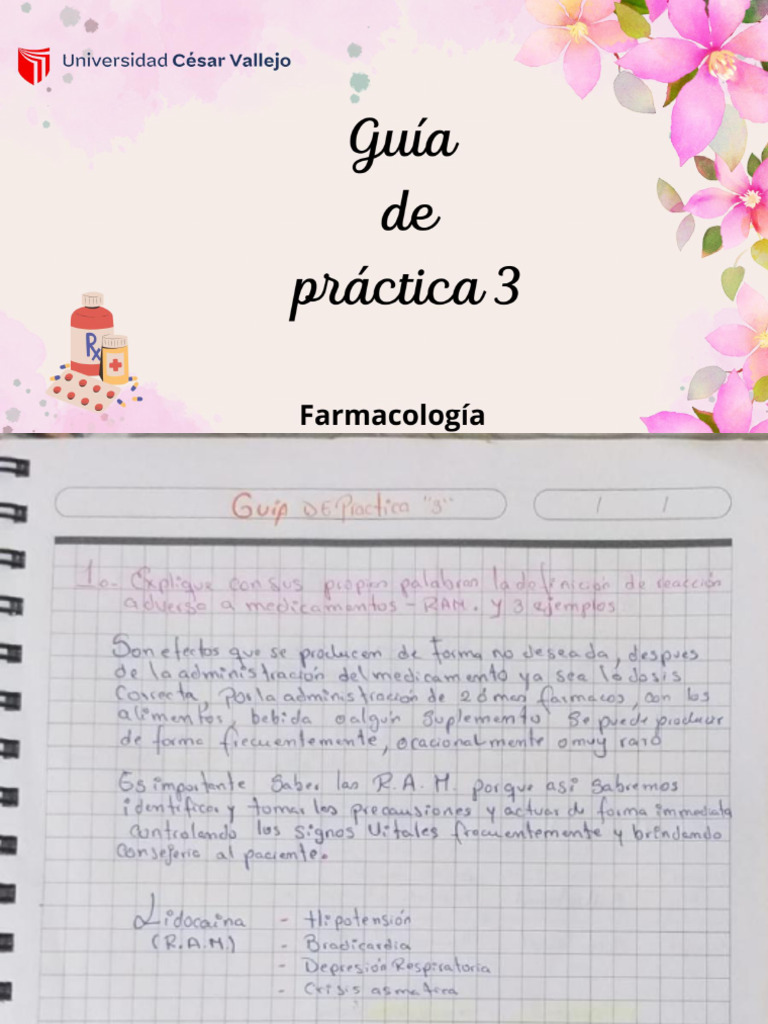 Universidad César Vallejo
Guía
de
práctica 3
Rx
Farmacología
Guia DE Practica "3"
1o- Explique con sus propias palabras la definición de reacción
adversa a medicamentos - RAM. y 3 ejemplos
Son efectos que se producen de forma no deseada, despues
de la administración del medicamento ya sea la dosis
Correcta, Por la administración de 2 ó mas farmacos, con los
alimentos, bebida o algún Suplemento Se puede producir
de forma frecuentemente, ocacionalmente o muy raro
Es importante Saber las R.A.M. porque asi Sabremos
identificar y tomar las precausiones y actuar de forma immediata
controlando los signos Vitales frecuentemente y brindando
consejeria al paciente.
Lidocaina - Hipotensión
(R.A.M.) - Bradicardia
- Depresión Respiratoria
- Crisis asmatica